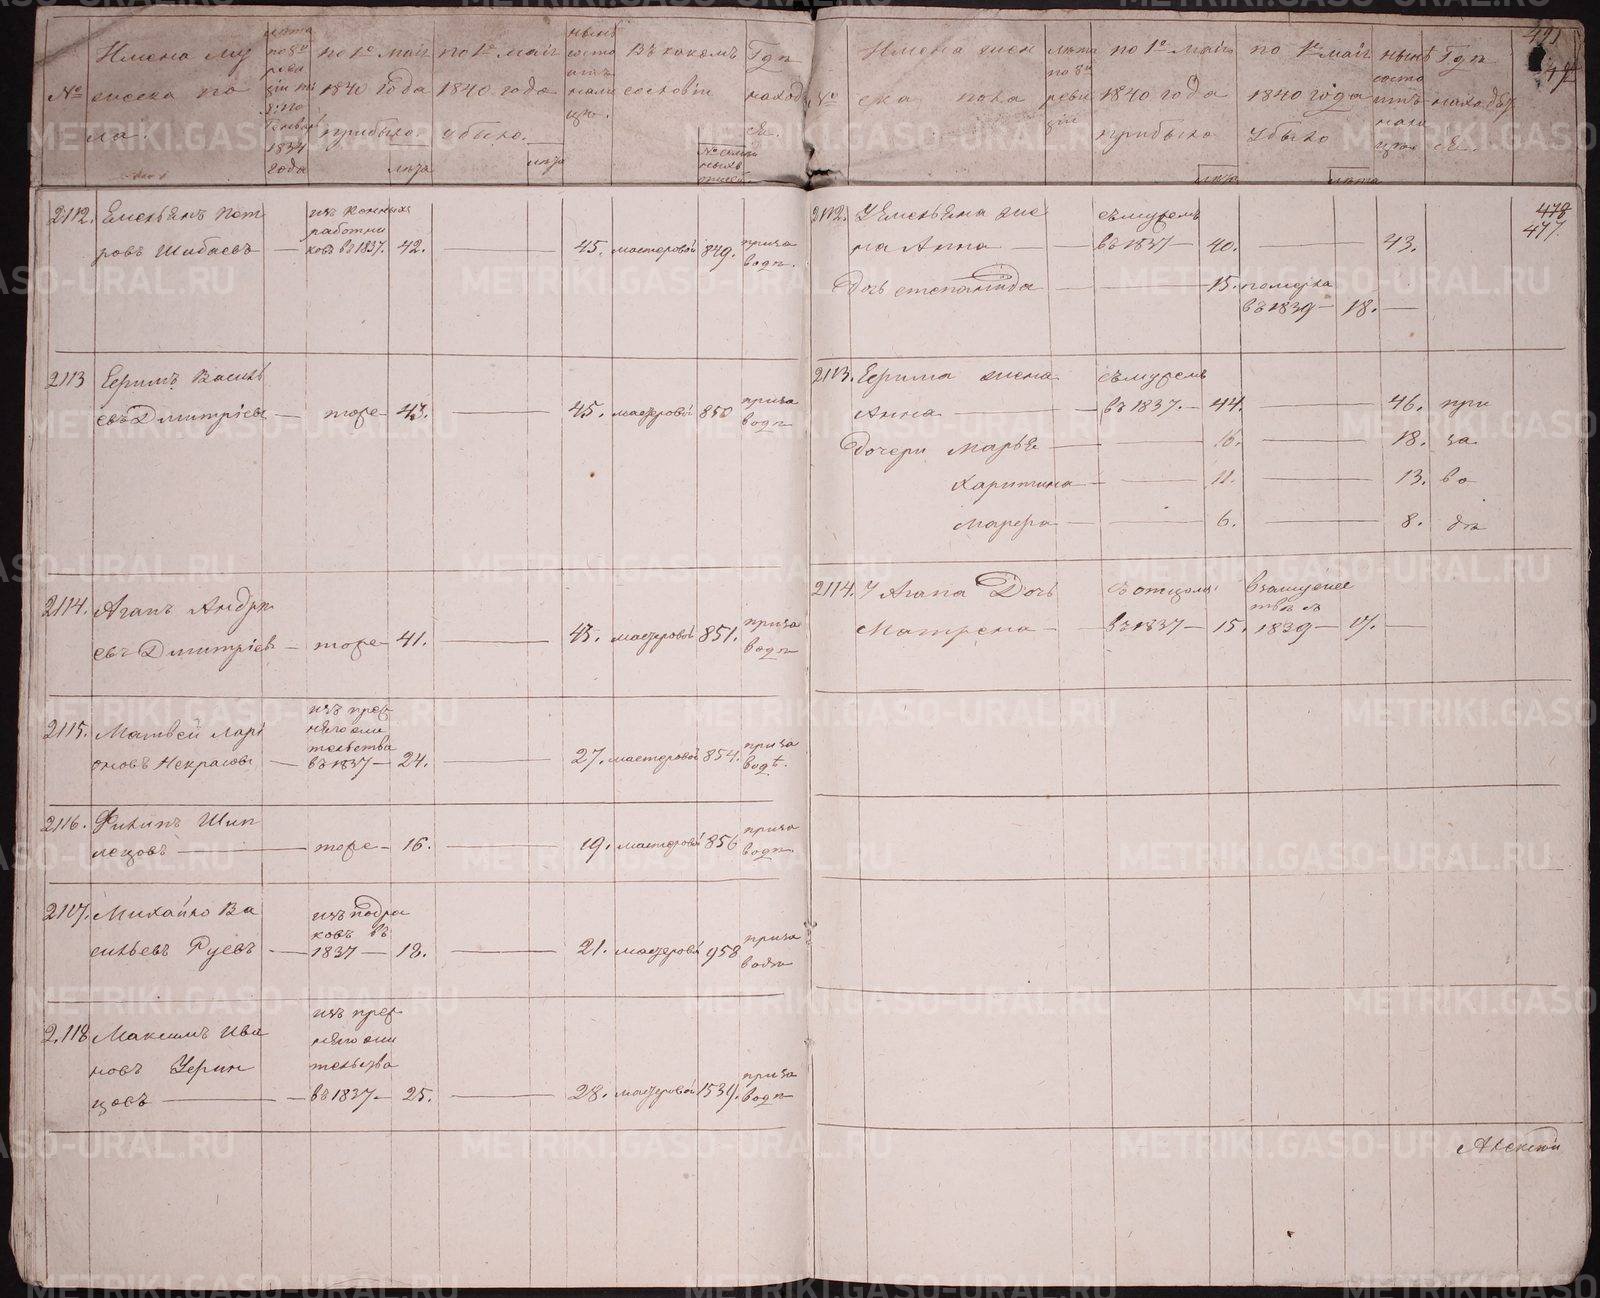 №
Имена му
жеска по
ла.
лѣта
по 8й
реви
1834
года
по 1е маія
1840 года
прибыло
лѣта
по 1е маія
1840 года
убыло.
лѣта
нынѣ
состо
итъ
нали
цо.
Въ какомъ
сословіи
Гдѣ
наход
ся.
2112. Емельянъ Пет
ровъ Шибаевъ
изъ конныхъ
работни
ковъ въ 1837. 42. 45. мастеровой 849. при за
водѣ.
2113 Ефимъ Василь
евъ Дмитріевъ тоже 43. 45. мастеровой 850 при за
водѣ
2114. Агапъ Андре
евъ Дмитріевъ тоже 41. 43. мастеровой 851. при за
водѣ
2115. Матвей Лари
оновъ Некрасовъ
изъ преж
няго оми
тельства
въ 1837 24. 27. мастеровой 854. при за
водѣ.
2116. Филипъ Шип
лецовъ тоже 16. 19. мастеровой 856 при за
водѣ.
2117. Михайло Ва
сильевъ Руевъ
1837 18. 21. мастеровой 958 при за
водѣ
2118 Максимъ Ива
новъ Уфин
цовъ
изъ преж
въ 1837 25. 28. мастеровой 1531. при за
водѣ
№
Имена жен
ска пола
лѣта
по 8й
реви
зіи
по 1е маія
1840 года
прибыло
лѣта
по 1е маія
1840 года
убыло
лѣта
нынѣ
состо
итъ
нали
цо
Гдѣ
находят
ся.
478
477
2112. У Емельяна же
на Анна
съ мужемъ
въ 1837 40. 43.
Дочь Степанида 15. померла
въ 1839 18.
2113. Ефима жена
Анна
съ мужемъ
въ 1837. 44. 46. при
Дочери Марья 16. 18. за
Харитина 11. 13. во
Марфа 6. 8. дѣ
2114. У Агапа Дочь
Матрена
съ отцомъ
въ 1837 15.
въ замужес
твѣ съ
1839 17.
Алексѣй
METRIKI.GASO-URAL.RU